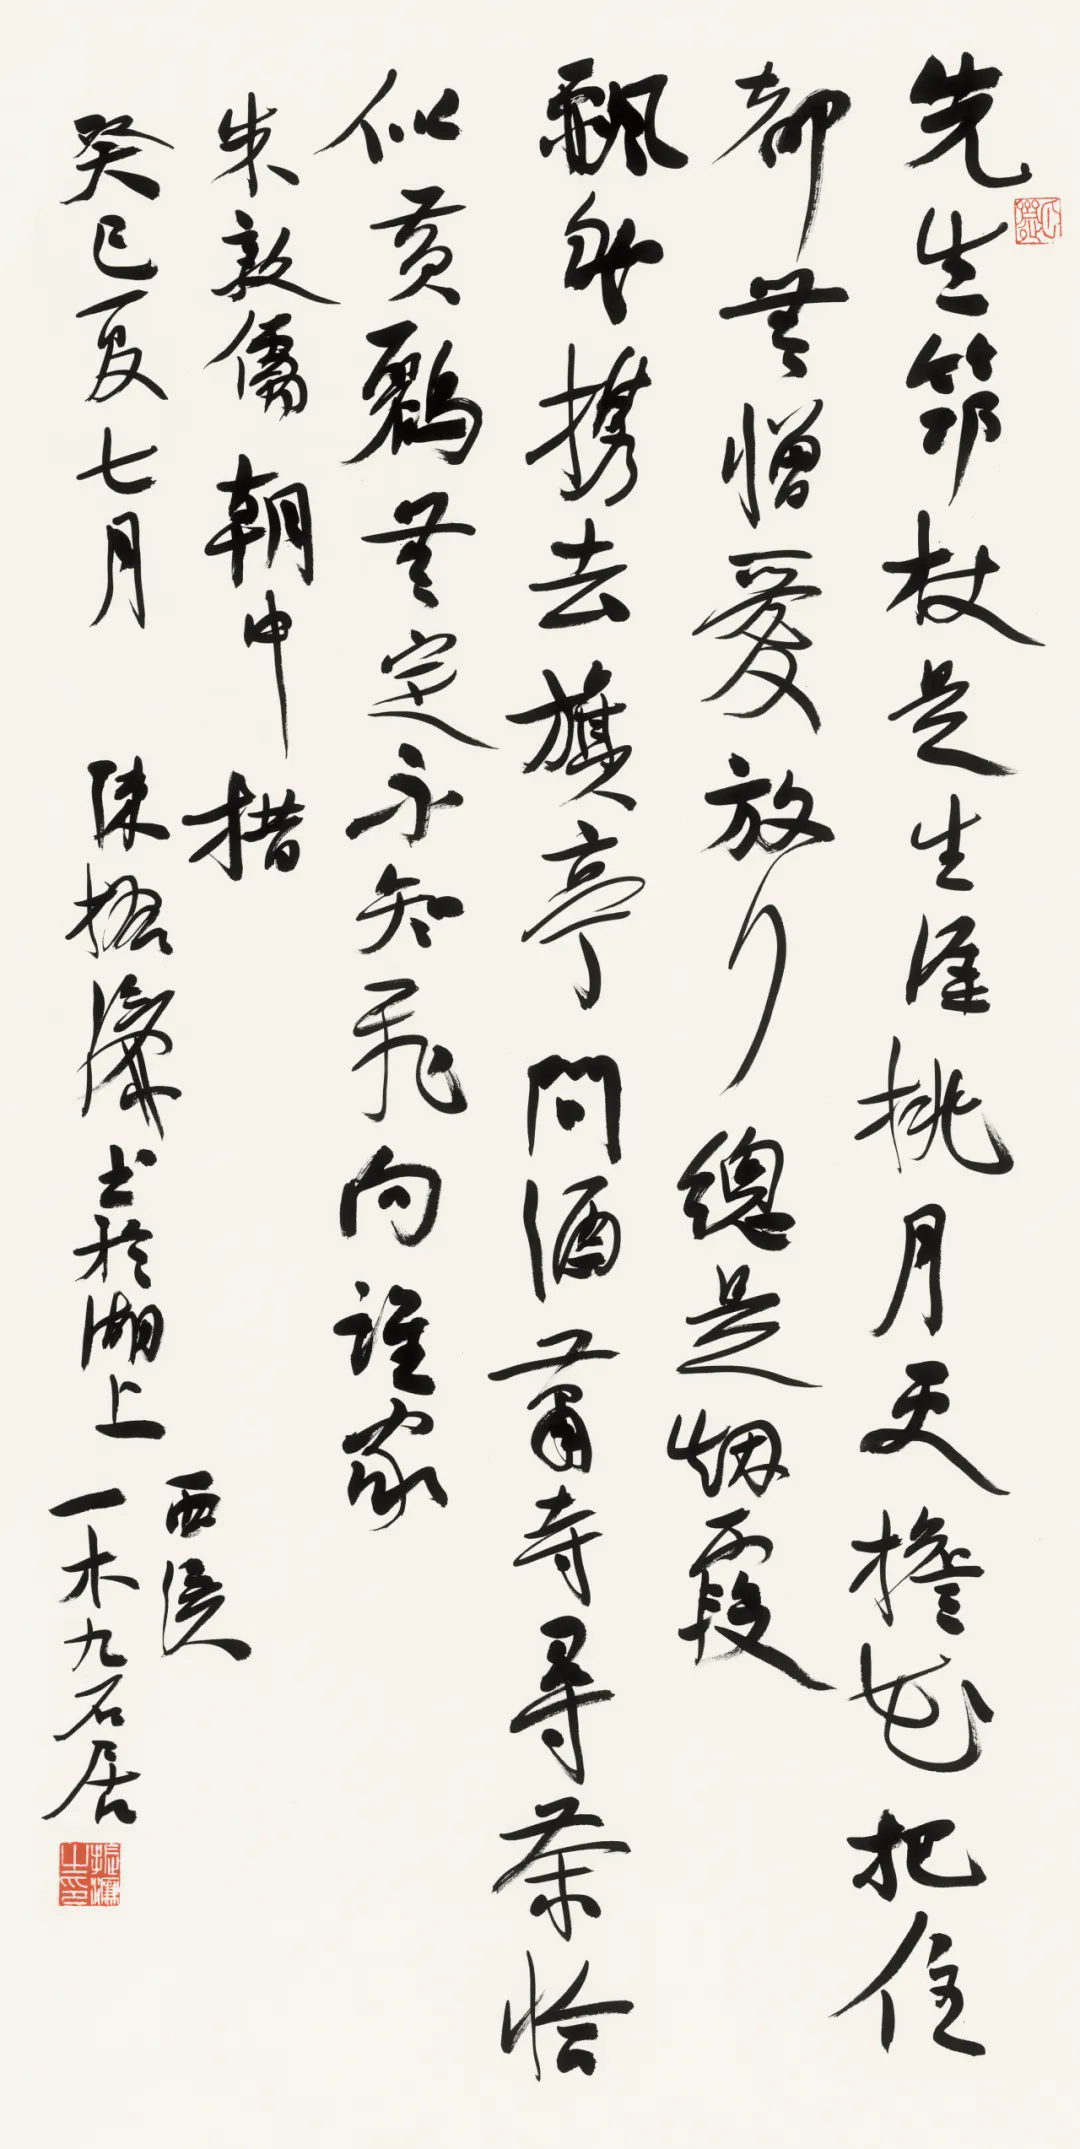 先生筇杖是生涯挑月更擔花把住
都無憎愛放行總是烟霞
飄然携去旗亭問酒蕭寺尋茶恰
似黄鸝無定不知飛向誰家
朱敦儒 朝中措
癸巳夏七月 陳振濂書於湖上
西溪
一木九石居
振濂之印